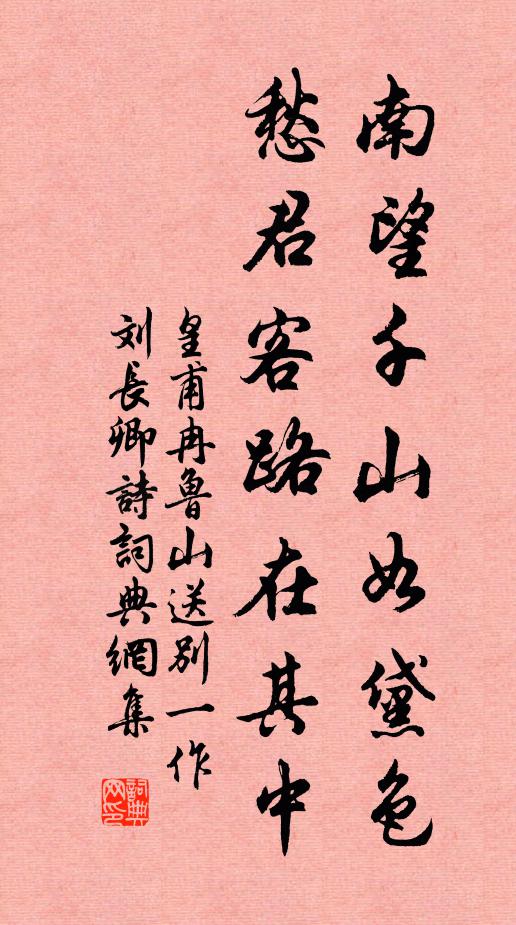 南望千山如黛色
愁君客路在其中
皇甫冉魯山送別一作
刘長卿詩詞典網集
詞典网印